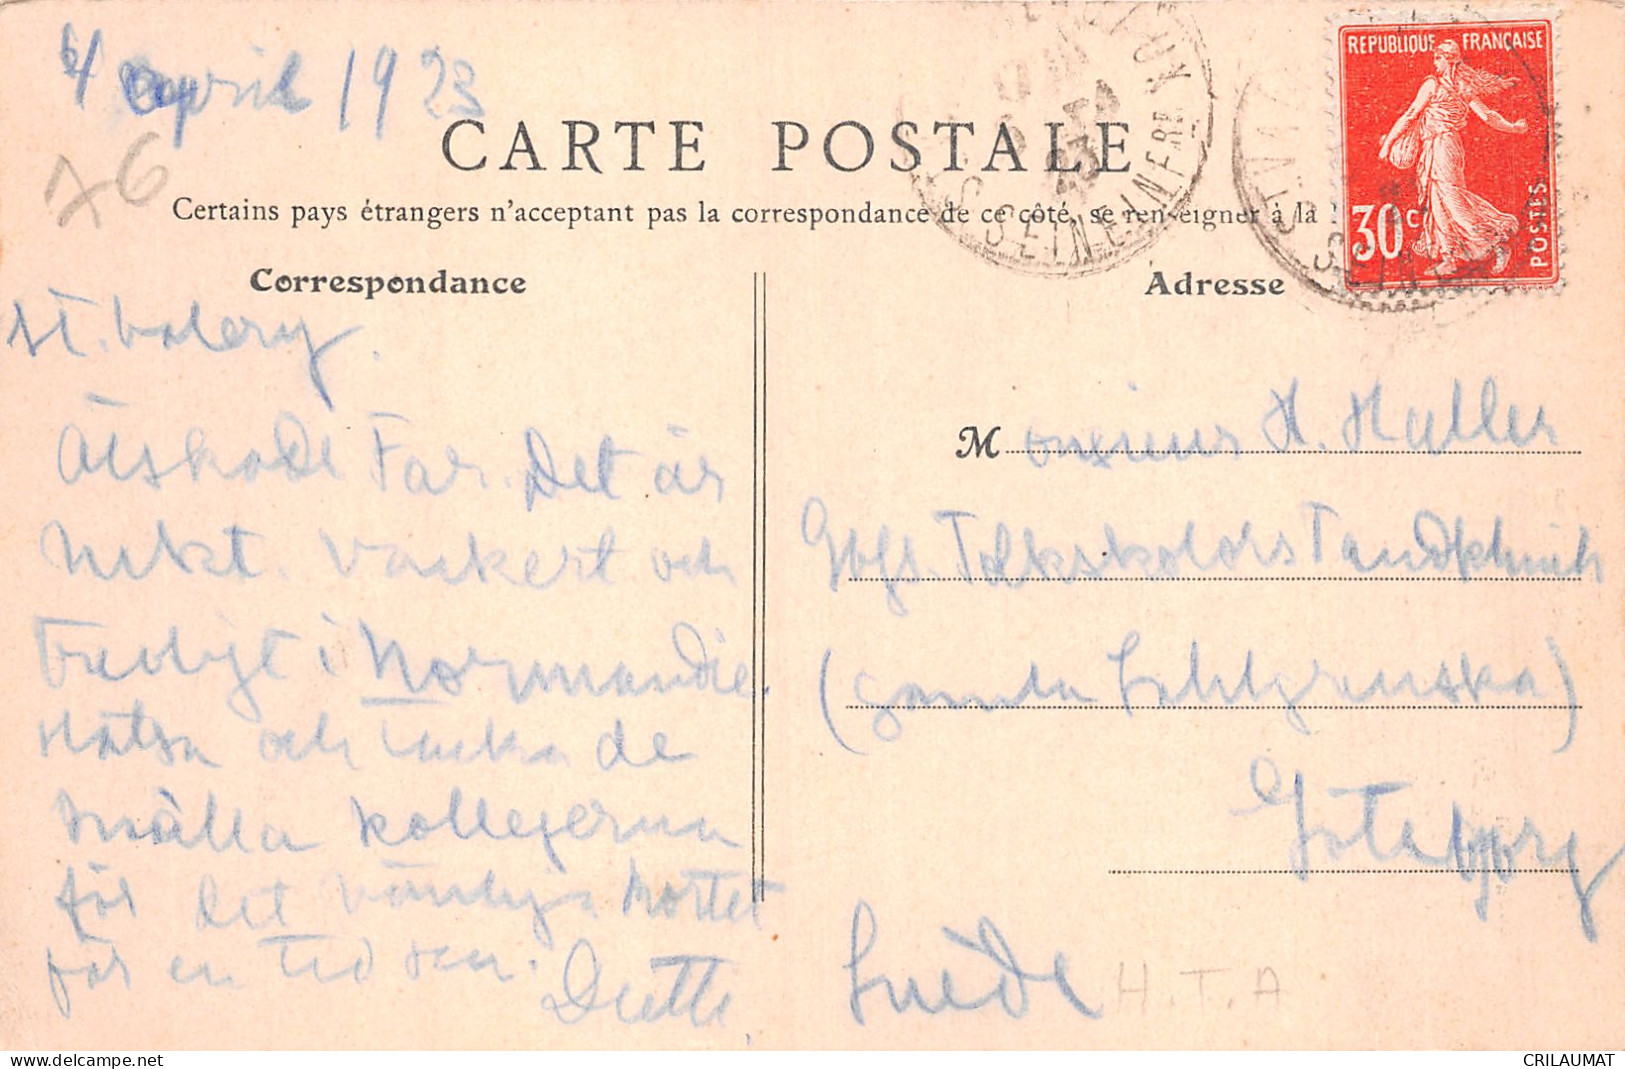 4 april 1923
76
CARTE POSTALE
Certains pays étrangers n'acceptent pas la correspondance de ce côté, se renseigner à la
Correspondance
Adresse
REPUBLIQUE FRANÇAISE
30c
POSTES
SEINE INFRE
23
St. Valery.
Älskade Far. Det är
mkt. vackert och
trevligt i Normandie.
Hälsa och tacka de
snälla kollegerna
för det vänliga kortet
för en tid sen.
M onsieur H. Hyller
Gbgs. Folkskolors Tandklinik
(Gamla Sahlgrenska)
Göteborg
Suède
H.T.A
CRILAUMAT
delcampe.net